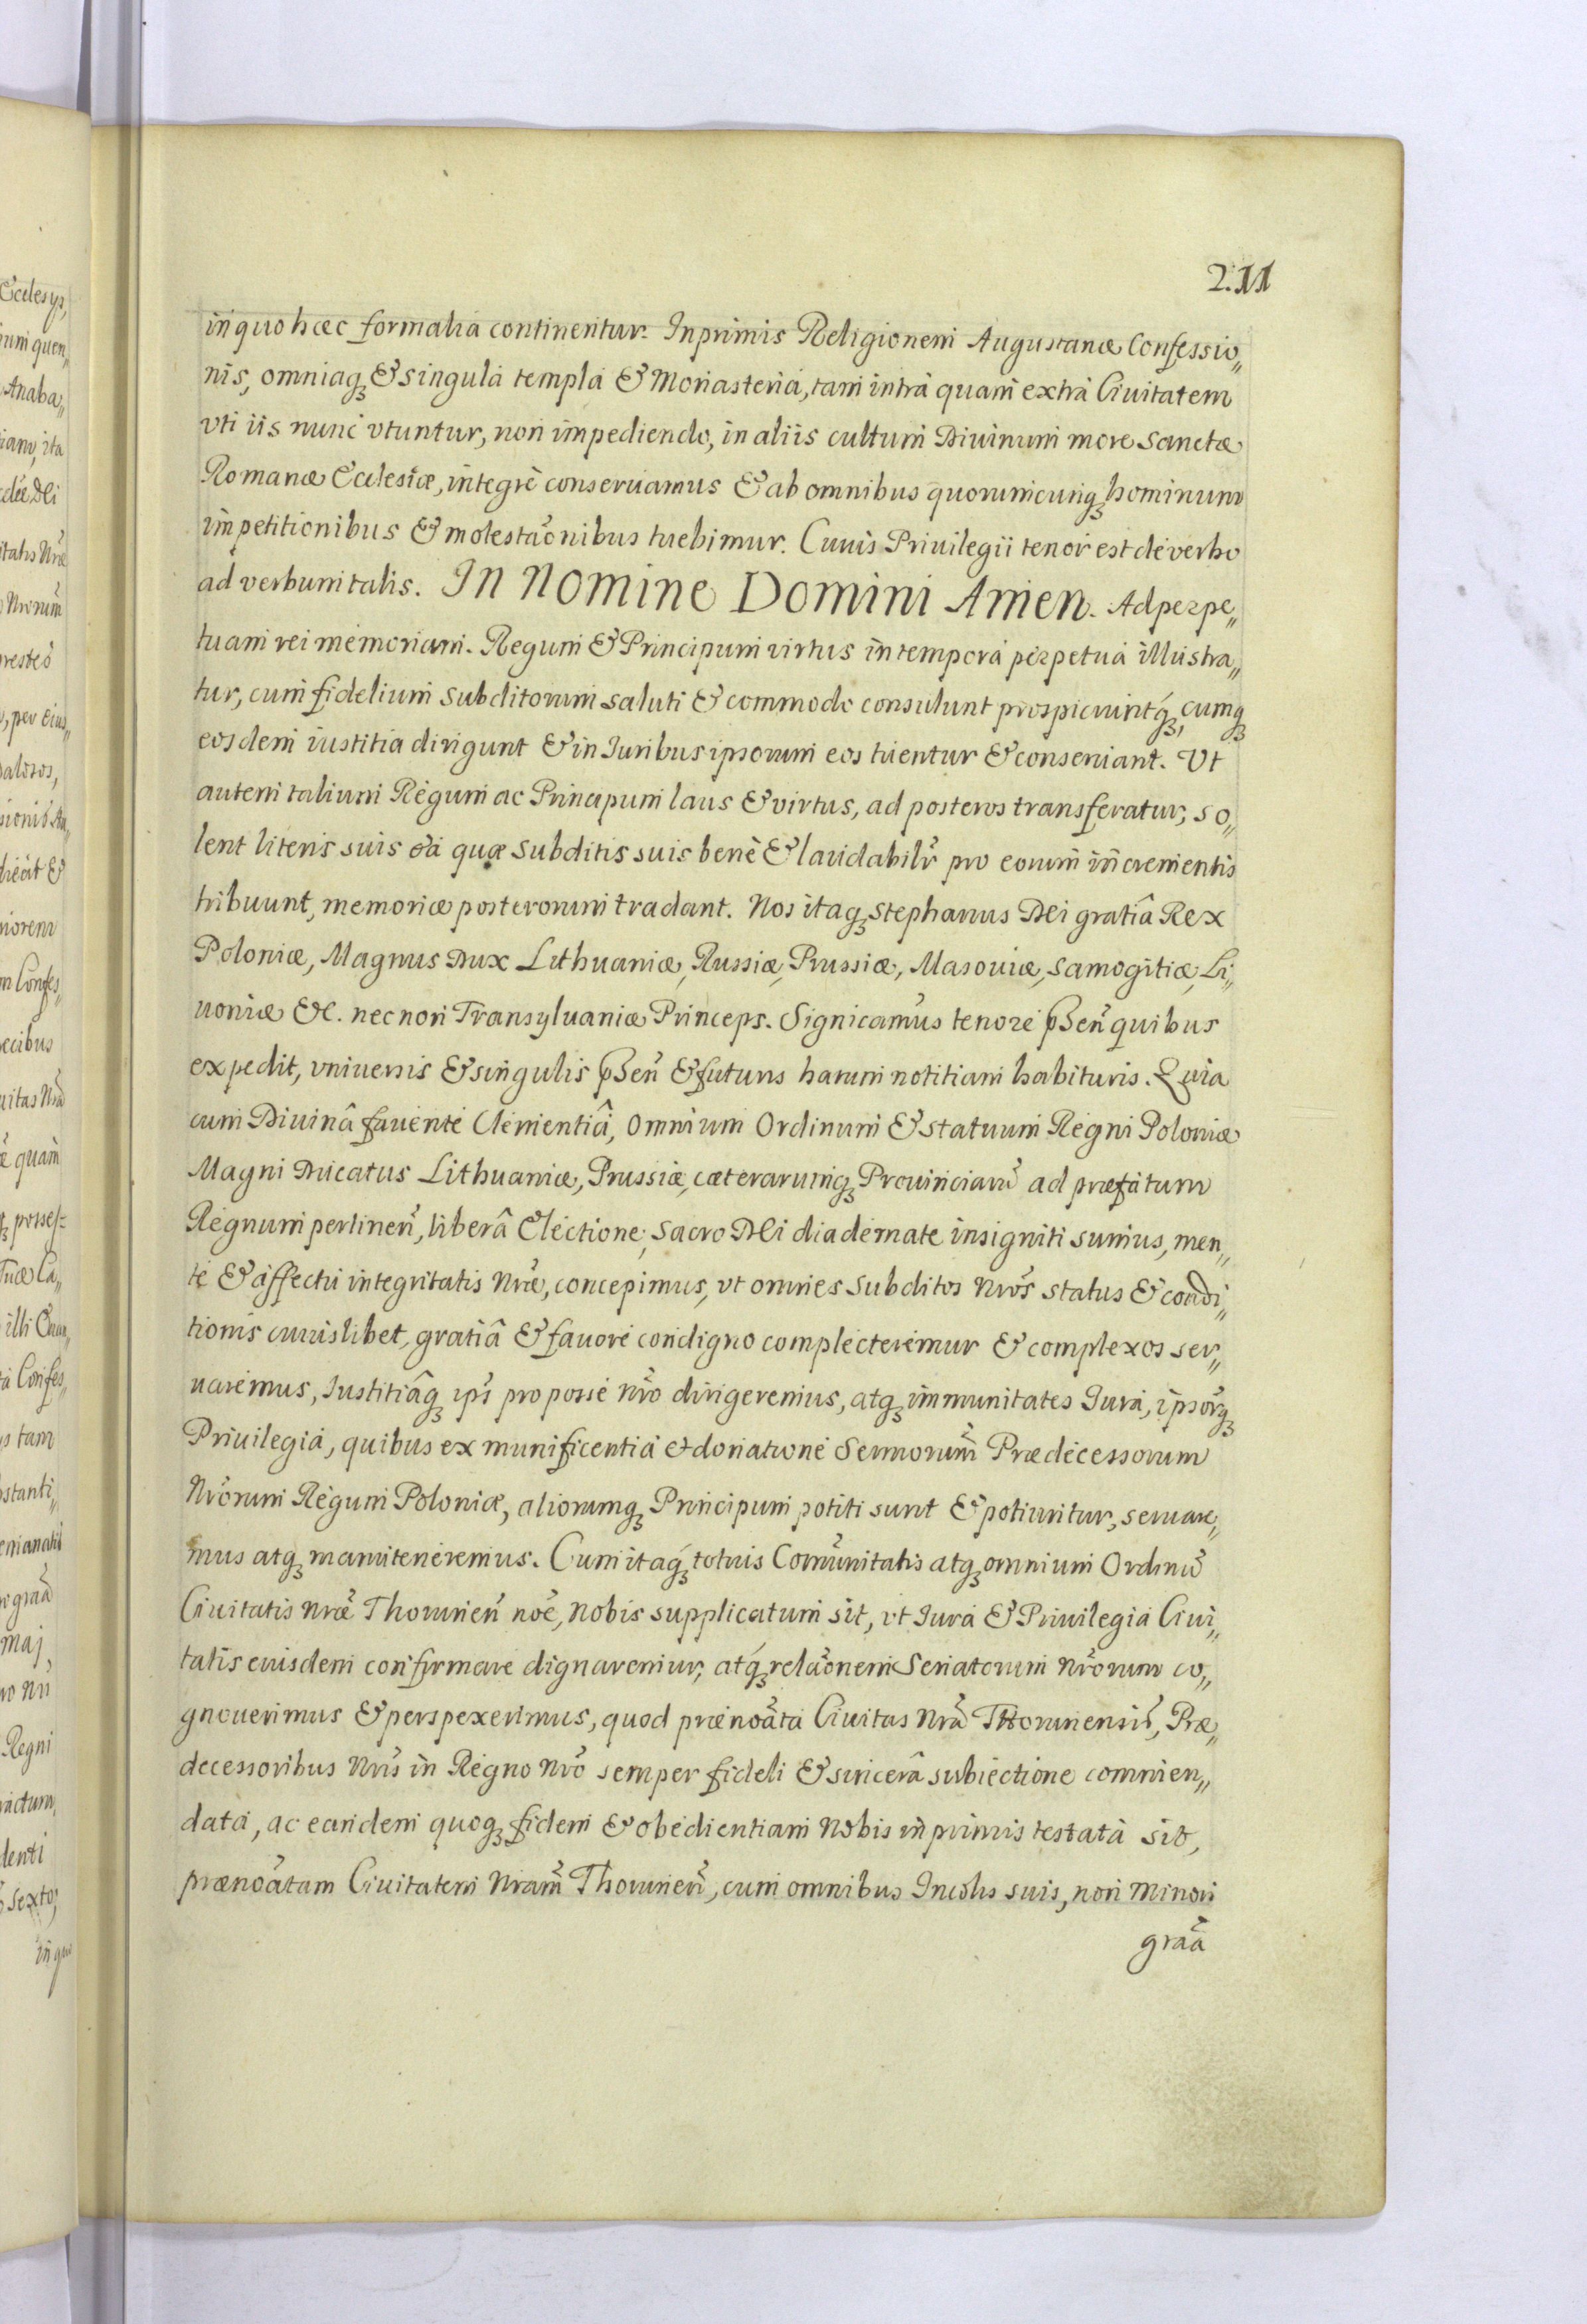 211
in quo hæc formalia continentur. Inprimis Religionem Augustanæ Confessio„
nis, omniaq; & singula templa & Monasteria, tam intrà quam extrà Ciuitatem
vti iis nunc vtuntur, non impediendo, in aliis cultum Diuinum more Sanctæ
Romanæ Ecclesiæ, integrè conseruamus & ab omnibus quorumcunq; hominum
impetitionibus & molestãonibus tuebimur. Cuuis Priuilegii tenor est de verbo
ad verbum talis. In Nomine Domini Amen. Ad perpe„
tuam rei memoriam. Regum & Principum virtus in tempora perpetua illustra„
tur, cum fidelium subditorum saluti & commodo consulunt prospiciuntq;, cumq;
eosdem iustitia dirigunt & in Iuribus ipsorum eos tuentur & conseruant. Vt
autem talium Regum ac Principum laus & virtus, ad posteros transferatur, so„
lent literis suis ea quæ subditis suis benè & laudabilr̃ pro eorum incrementis
tribuunt, memoriæ posterorum tradant. Nos itaq; Stephanus Dei gratiâ Rex
Poloniæ, Magnus Dux Lithuaniæ, Russiæ, Prussiæ, Masouiæ, Samogitiæ, Li„
uoniæ &c. necnon Transyluaniæ Princeps. Signicamus tenore p̃sen̄ quibus
expedit, vniuersis & singulis p̃sen̄ & futuris harum notitiam habituris. Quia
cum Diuinâ fauente Clementiâ, omnium Ordinum & statuum Regni Poloniæ
Magni Ducatus Lithuaniæ, Prussiæ, cæterarumq; Prouinciarũ ad præfatum
Regnum pertinen̄, liberâ Electione, sacro Dei diademate insigniti sumus, men„
te & affectu integritatis Nr̃æ, concepimus, vt omnes subditos Nrõs status & condi„
tionis cuiuslibet, gratiâ & fauore condigno complecteremur & complexos ser„
uaremus, Iustitiâq; ips̃ pro posse nrõ dirigeremus, atq; immunitates Iura, ipsorq̃;
Priuilegia, quibus ex munificentia et donatione Sermorum̃ Prædecessorum
Nrõrum Regum Poloniæ, aliorumq; Principum potiti sunt & potiuntur, seruare„
mus atq; manuteneremus. Cum itaq; totius Com̃unitatis atq; omnium Ordinũ
Ciuitatis Nrãæ Thorunen̄ noẽ, Nobis supplicatum sit, vt Iura & Priuilegia Ciui„
tatis eiusdem confirmare dignaremur, atq; relãonem Senatorum Nrõrum co„
gnouerimus & perspexerimus, quod prænoãta Ciuitas Nrã Thorunensis, Præ„
decessoribus Nris̃ in Regno Nrõ semper fideli & sincerâ subiectione commen„
data, ac eandem quoq; fidem & obedientiam Nobis inprimis testata sit,
prænoãtam Ciuitatem Nram̃ Thorunen̄, cum omnibus Incolis suis, non minori
graã